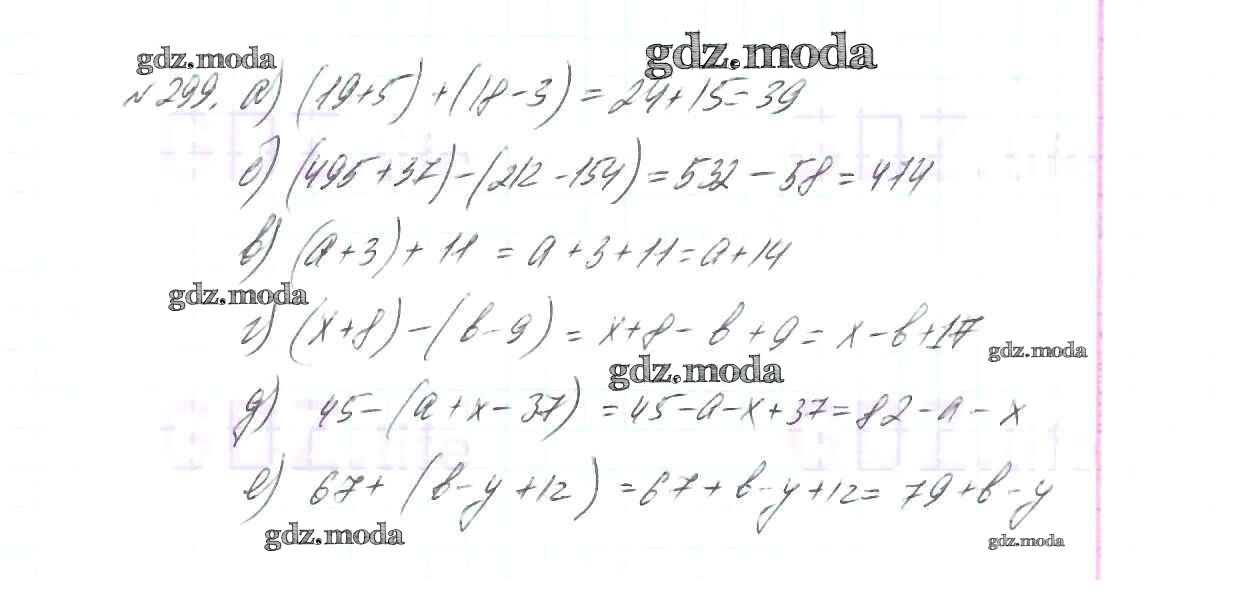 gdz.moda
gdz.moda
№ 299. а) (19+5)+(18-3)=24+15=39
б) (495+37)-(212-154)=532-58=474
в) (a+3)+11=a+3+11=a+14
gdz.moda
г) (x+8)-(b-9)=x+8-b+9=x-b+17
gdz.moda
gdz.moda
д) 45-(a+x-37)=45-a-x+37=82-a-x
е) 67+(b-y+12)=67+b-y+12=79+b-y
gdz.moda
gdz.moda